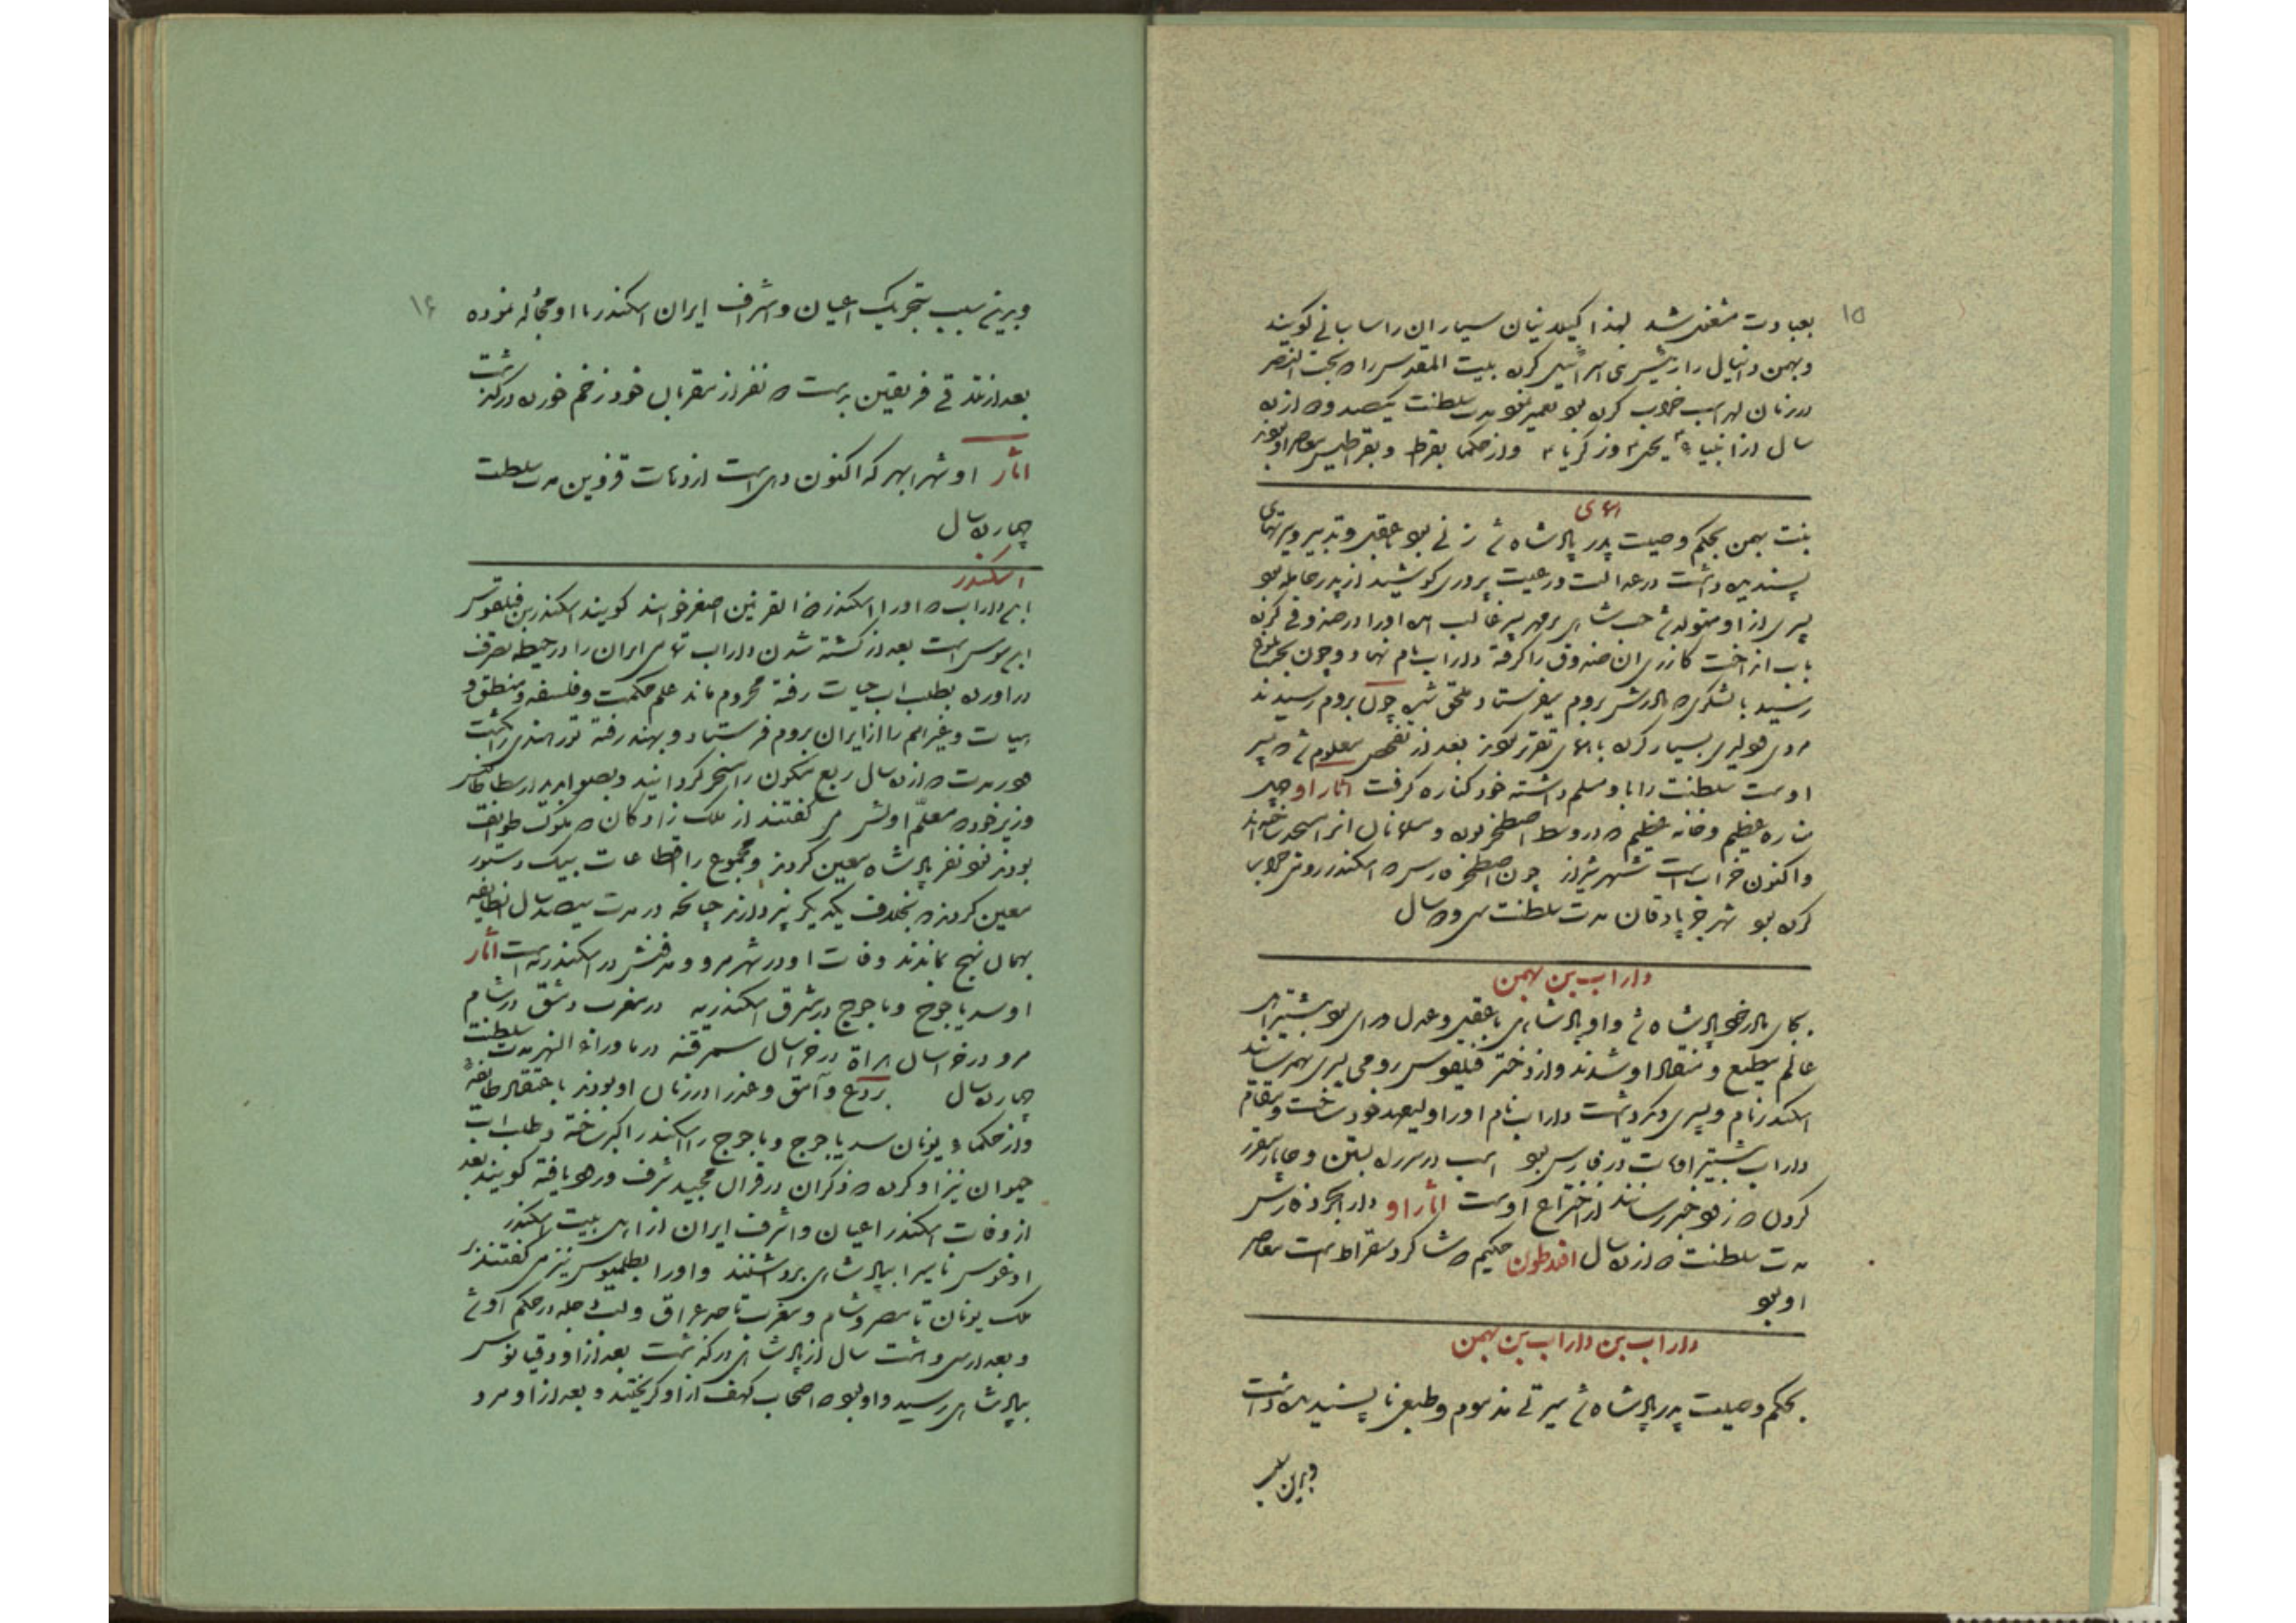 ۱۵
بعبادت مشغول شد لهذا کیلانیان سیماران را ساسانی کویند
وبهمن دانیال را از پیشری اسرائیل کرده بیت المقدس را که بخت النصر
در زمان لهراسب خراب کرده بود تعمیر نمود مدت سلطنت یکصد و دوازده
سال از انبیاء یحیی و زکریا و از حکما بقراط و بقراطیس معاصر او بودند
همای
بنت بهمن بحکم وصیت پدر پادشاه شد زنی بود باعقل و تدبیر و سیرتهای
پسندیده داشت در عدالت و رعیت پروری کوشید از پدر حامله بود
پسری از او متولد شد حب شاهی بر مهر پسر غالب آمده او را در صندوقی کرده
باب انداخت کازری ان صندوق را کرفته داراب نام نهاد و چون بحد بلوغ
رسید با لشکری که مادرش بروم میفرستاد ملحق شده چون بروم رسیدند
مردی و دلیری بسیار کرده با همای تقریر کردند بعد از تفحص معلوم شد که پسر
اوست سلطنت را باو مسلم داشته خود کناره کرفت اثار او چهر
مناره عظیم و خانه عظیم که در وسط اصطخر بوده و مسلمانان انرا مسجد ساخته اند
واکنون خراب است شهر شیراز چون اصطخر فارس که اسکندر رومی خراب
کرده بود شهر جربادقان مدت سلطنت سی و دو سال
داراب بن بهمن
بجای مادر خود پادشاه شد و او پادشاهی باعقل و عدل و رای بود بیشتر اهل
عالم مطیع و منقاد او شدند و از دختر فیلقوس رومی پسری بهم رسانید
اسکندر نام و پسری دیکر داشت داراب نام او را ولیعهد خود ساخت و مقام
داراب بیشتر اوقات در فارس بود اسب در سر راه بستن و چاپار مقرر
کردن که زود خبر رسانند از اختراع اوست اثار او دارابجرد فارس
مدت سلطنت دوازده سال افلاطون حکیم که شاکرد سقراط است معاصر
او بود
داراب بن داراب بن بهمن
بحکم وصیت پدر پادشاه شد سیرتی مذموم و طبعی ناپسندیده داشت
وبدین سبب
۱۶
وبدین سبب بتحریک اعیان و اشراف ایران اسکندر با او مجادله نموده
بعد از تلاقی فریقین بدست دو نفر از مقربان خود زخم خورده درکذشت
اثار او شهر ابهر که اکنون دهی است از دهات قزوین مدت سلطنت
چهارده سال
اسکندر
ابن داراب که او را اسکندر ذو القرنین اصغر خوانند کویند اسکندر بن فیلقوس
رومی است بعد از کشته شدن داراب تمامی ایران را در حیطه تصرف
دراورده بطلب اب حیات رفته محروم ماند علم حکمت و فلسفه و منطق و
هیات و غیرهم را از ایران بروم فرستاد و بهند رفته فور هندی را کشت
در مدت دوازده سال ربع مسکون را مسخر کردانید و بصوابدید ارسطاطالیس
وزیر خود که معلم اولش می کفتند از ملک زادکان که ملوک طوایف
بودند نود نفر پادشاه معین کردند و مجموع را اقطاعات بیک دستور
معین کردند که بخلاف یکدیکر نپردازند چنانچه در مدت سیصد سال انطایفه
بهمان نهج بماندند وفات او در شهر مرو و مدفنش در اسکندریه است اثار
او سد یاجوج و ماجوج در مشرق اسکندریه در مغرب دمشق در شام
مرو در خراسان هراة در خراسان سمرقند در ماوراء النهر مدت سلطنت
چهارده سال بردع وامق و عذرا در زمان او بودند باعتقاد طایفه
واز حکماء یونان سد یاجوج و ماجوج را اسکندر اکبر ساخته و طلب اب
حیوان نیز او کرده که ذکر ان در قران مجید شرف ورود یافته کویند بعد
از وفات اسکندر اعیان و اشرف ایران از اهل بیت اسکندر
ادغوس نامی را بپادشاهی برداشتند و او را بطلمیوس نیز می کفتند بر
ملک یونان تا مصر و شام و مغرب تا حد عراق و لب دجله در حکم او شد
و بعد از سی و هشت سال از پادشاهی درکذشت بعد از او دقیانوس
بپادشاهی رسید و او بود که اصحاب کهف از او کریختند و بعد از او مرد